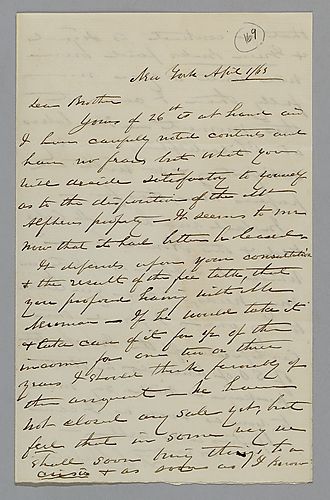 169
New York April 1/63
Dear Brother
Yours of 26th is at hand and
I have carefully noted contents and
have no fears but what you
will decide satisfactory to yourself
as to the disposition of the
Alpheus property - It seems to me
now that it had better be leased
It depends upon your consultation
& the result of the tete, that
you proposed having with Mr
Merriman - If he would take it
& take care of it for 1/2 of the
income for one two or three
years I should think favorably of
the arrgmnt - We have
not closed any sale yet, but
feel that in some way we
shall soon bring things to a
crisis & as soon as I know